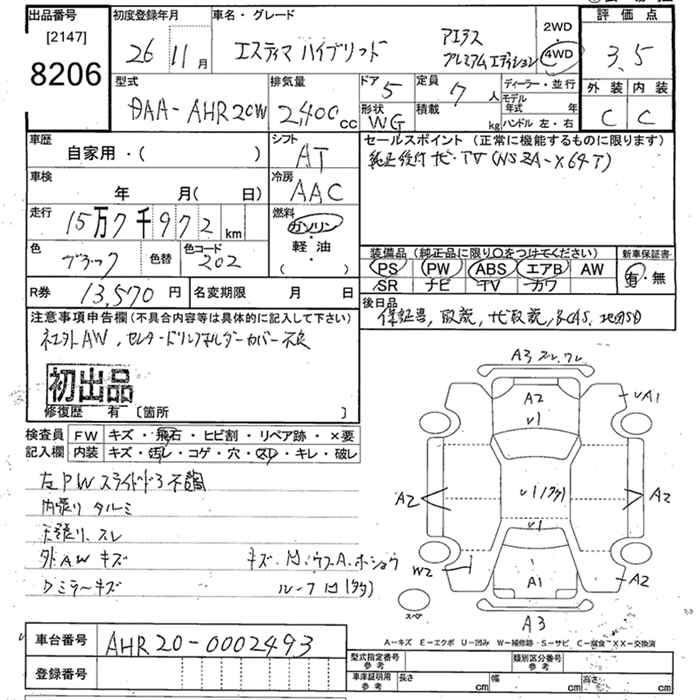 出品番号 初度登録年月 車名・グレード 評価点
[2147]
8206
26 11月 エスティマ ハイブリッド アエラス プレミアムエディション 2WD 4WD 3.5
型式 排気量 ドア 5 定員 7人 ディーラー・並行 外装 内装
DAA-AHR20W 2,400cc 形状 WG 積載 kg モデル年式 年 ハンドル 左・右 C C
車歴 シフト セールスポイント(正常に機能するものに限ります)
自家用・( ) AT
車検 冷房
年 月( 日) AAC
走行 15万7千972km 燃料 ガソリン・軽・油・( )
色 ブラック 色替 色コード 202
装備品(純正品に限り○をつけてください) 新車保証書
PS PW ABS エアB AW 有・無
SR ナビ TV カワ
R券 13,570円 名変期限 月 日
後日品
注意事項申告欄(不具合内容等は具体的に記入して下さい)
初出品
修復歴 有 [箇所 ]
検査員 FW キズ・飛石・ヒビ割・リペア跡・×要
記入欄 内装 キズ・汚レ・コゲ・穴・スレ・キレ・破レ
左PWスライドドア不調
内張りタルミ
天張り、スレ
外AWキズ
ミラーキズ
A3 A2 U1 UA1
A2 A2
U1 W2 A1 A2
スペア A3
A-キズ E-エクボ U-凹み W-補修跡 S-サビ C-腐食 XX-交換済
車台番号 AHR20-0002493
登録番号
型式指定番号 参考 類別区分番号 参考
車庫証明用 参考 長さ cm 幅 cm 高さ cm